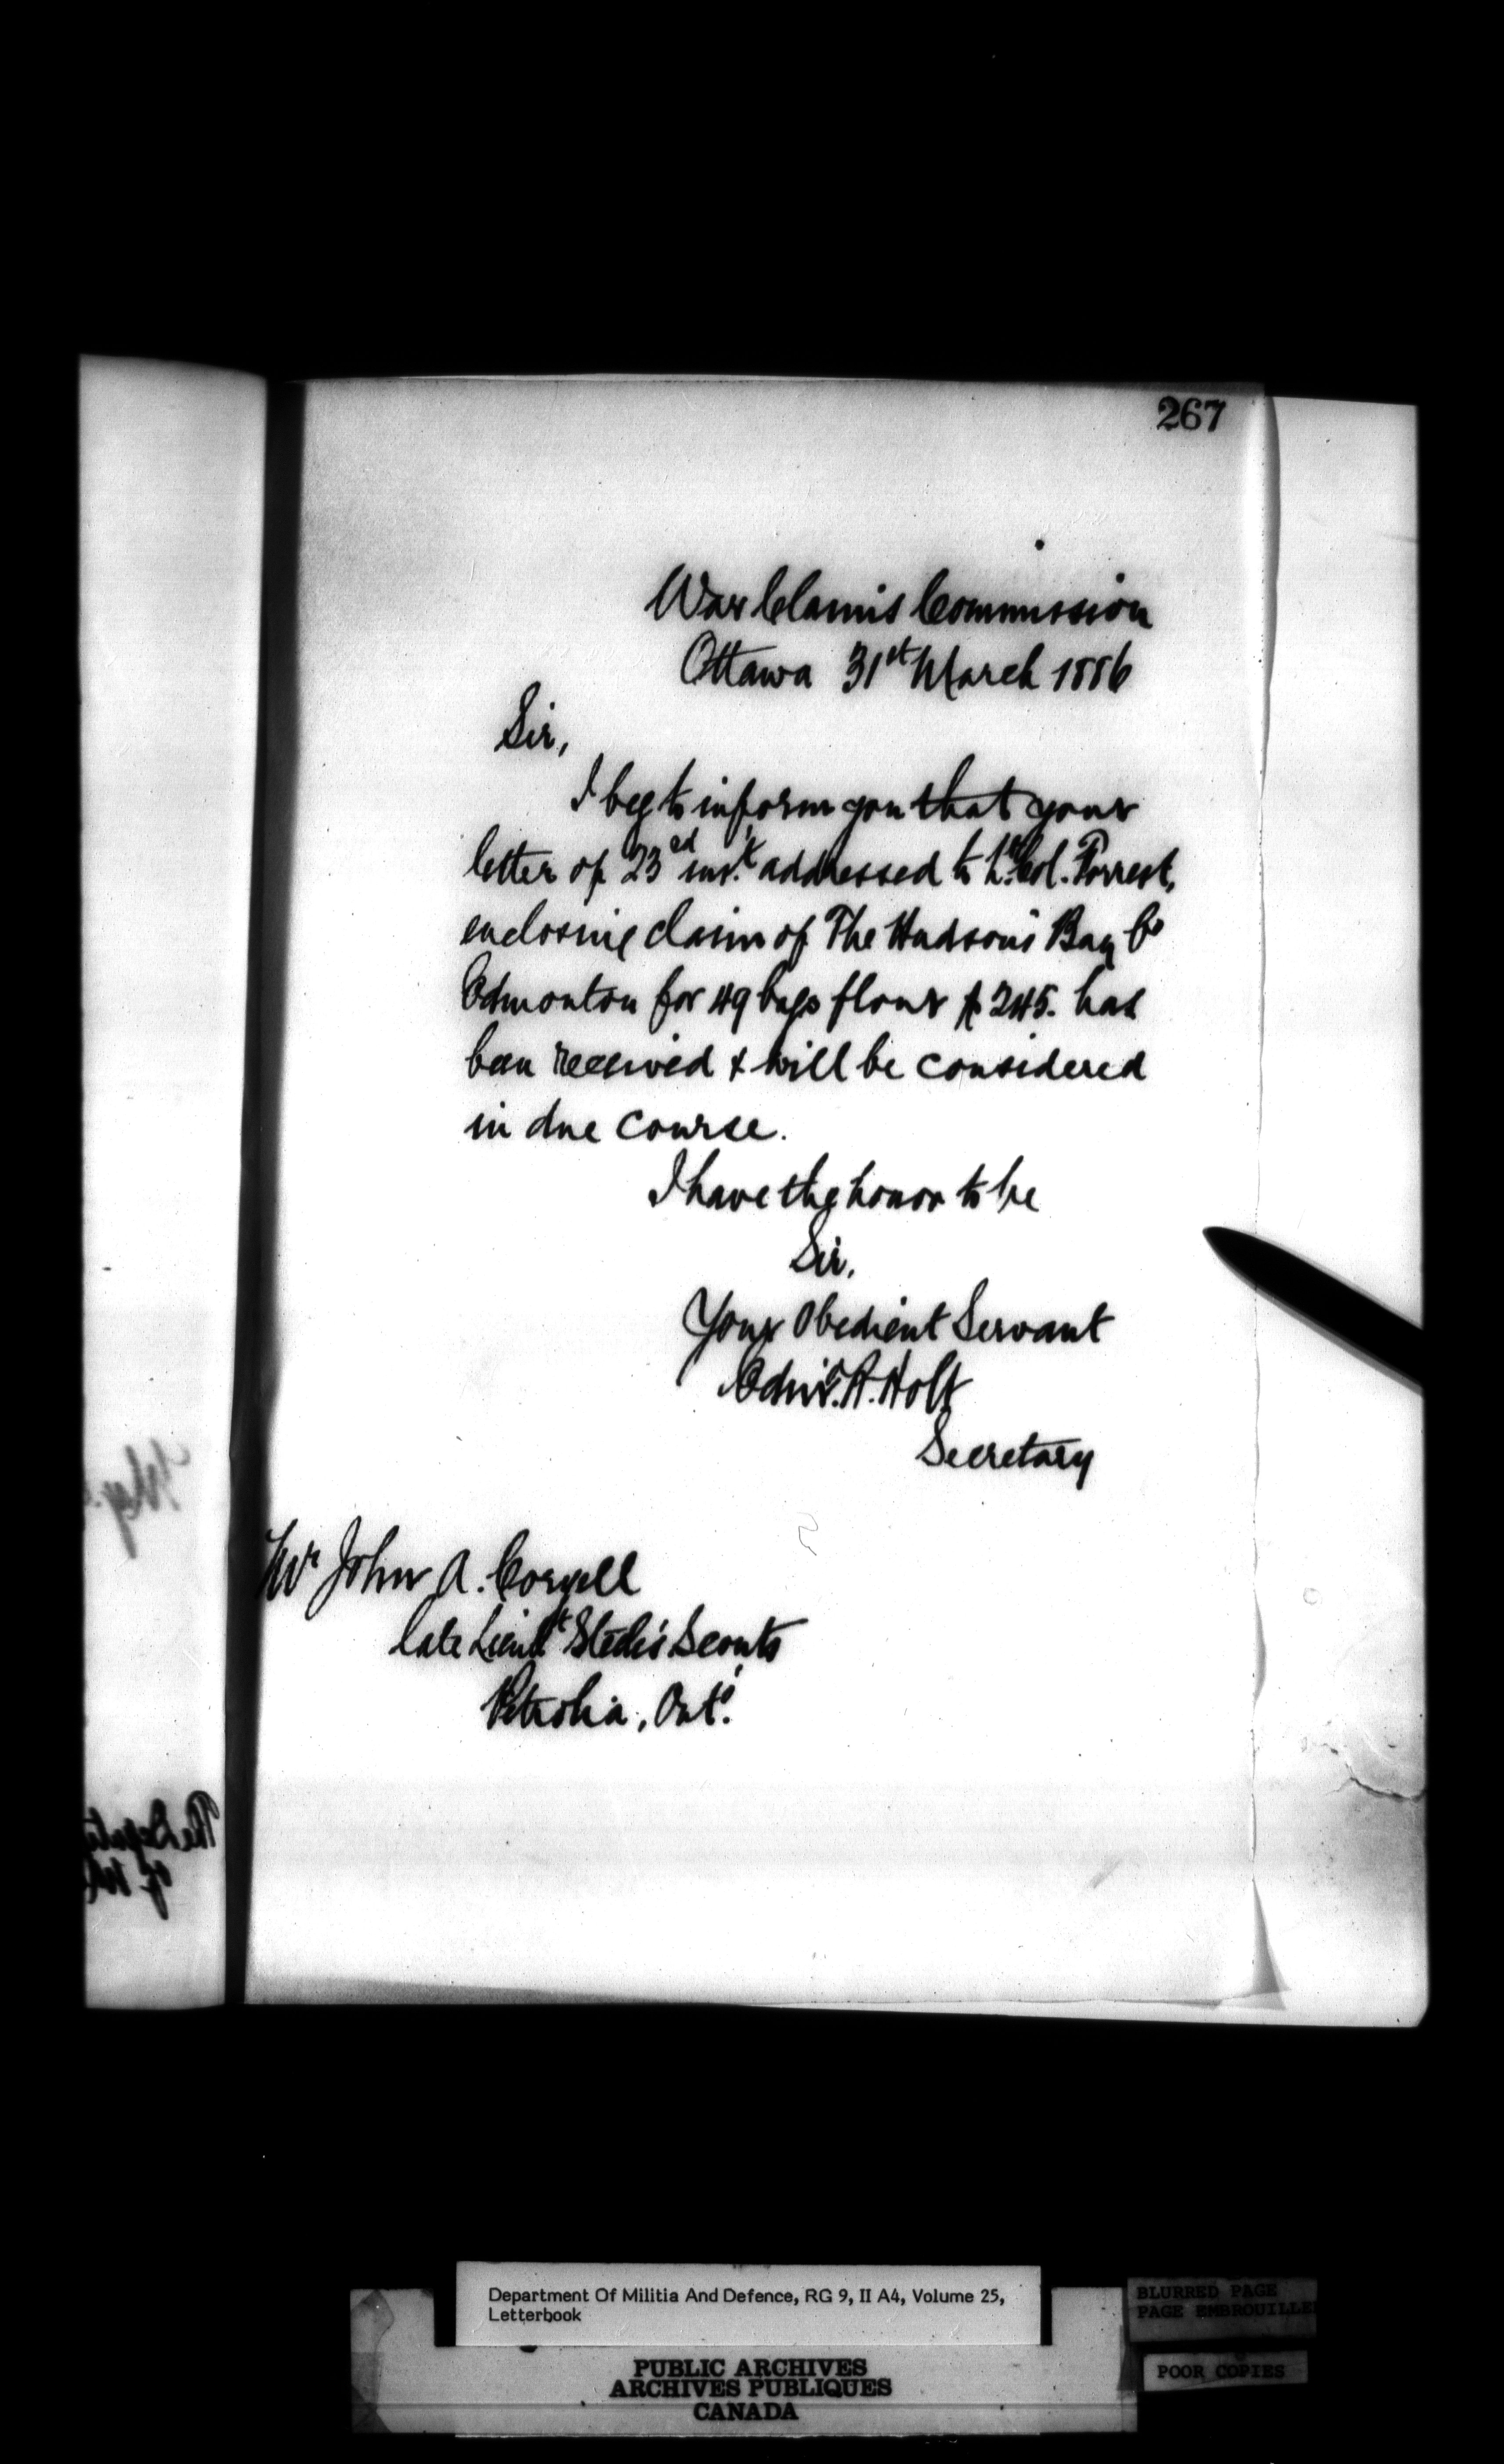 267
War Claims Commission
Ottawa 31st March 1886
Sir,
I beg to inform you that your
letter of 23rd inst. addressed to Lt. Col. Forrest,
enclosing claim of The Hudson's Bay Co
Edmonton for 49 bags flour $245. has
been received & will be considered
in due course.
I have the honor to be
Sir,
Your Obedient Servant
Edmd. A. Holt
Secretary
Mr John A. Coryell
late Lieut Steele's Scouts
Petrolia, Onto.
The Deputy
of
Department Of Militia And Defence, RG 9, II A4, Volume 25,
Letterbook
PUBLIC ARCHIVES
ARCHIVES PUBLIQUES
CANADA
BLURRED PAGE
PAGE EMBROUILLE
POOR COPIES